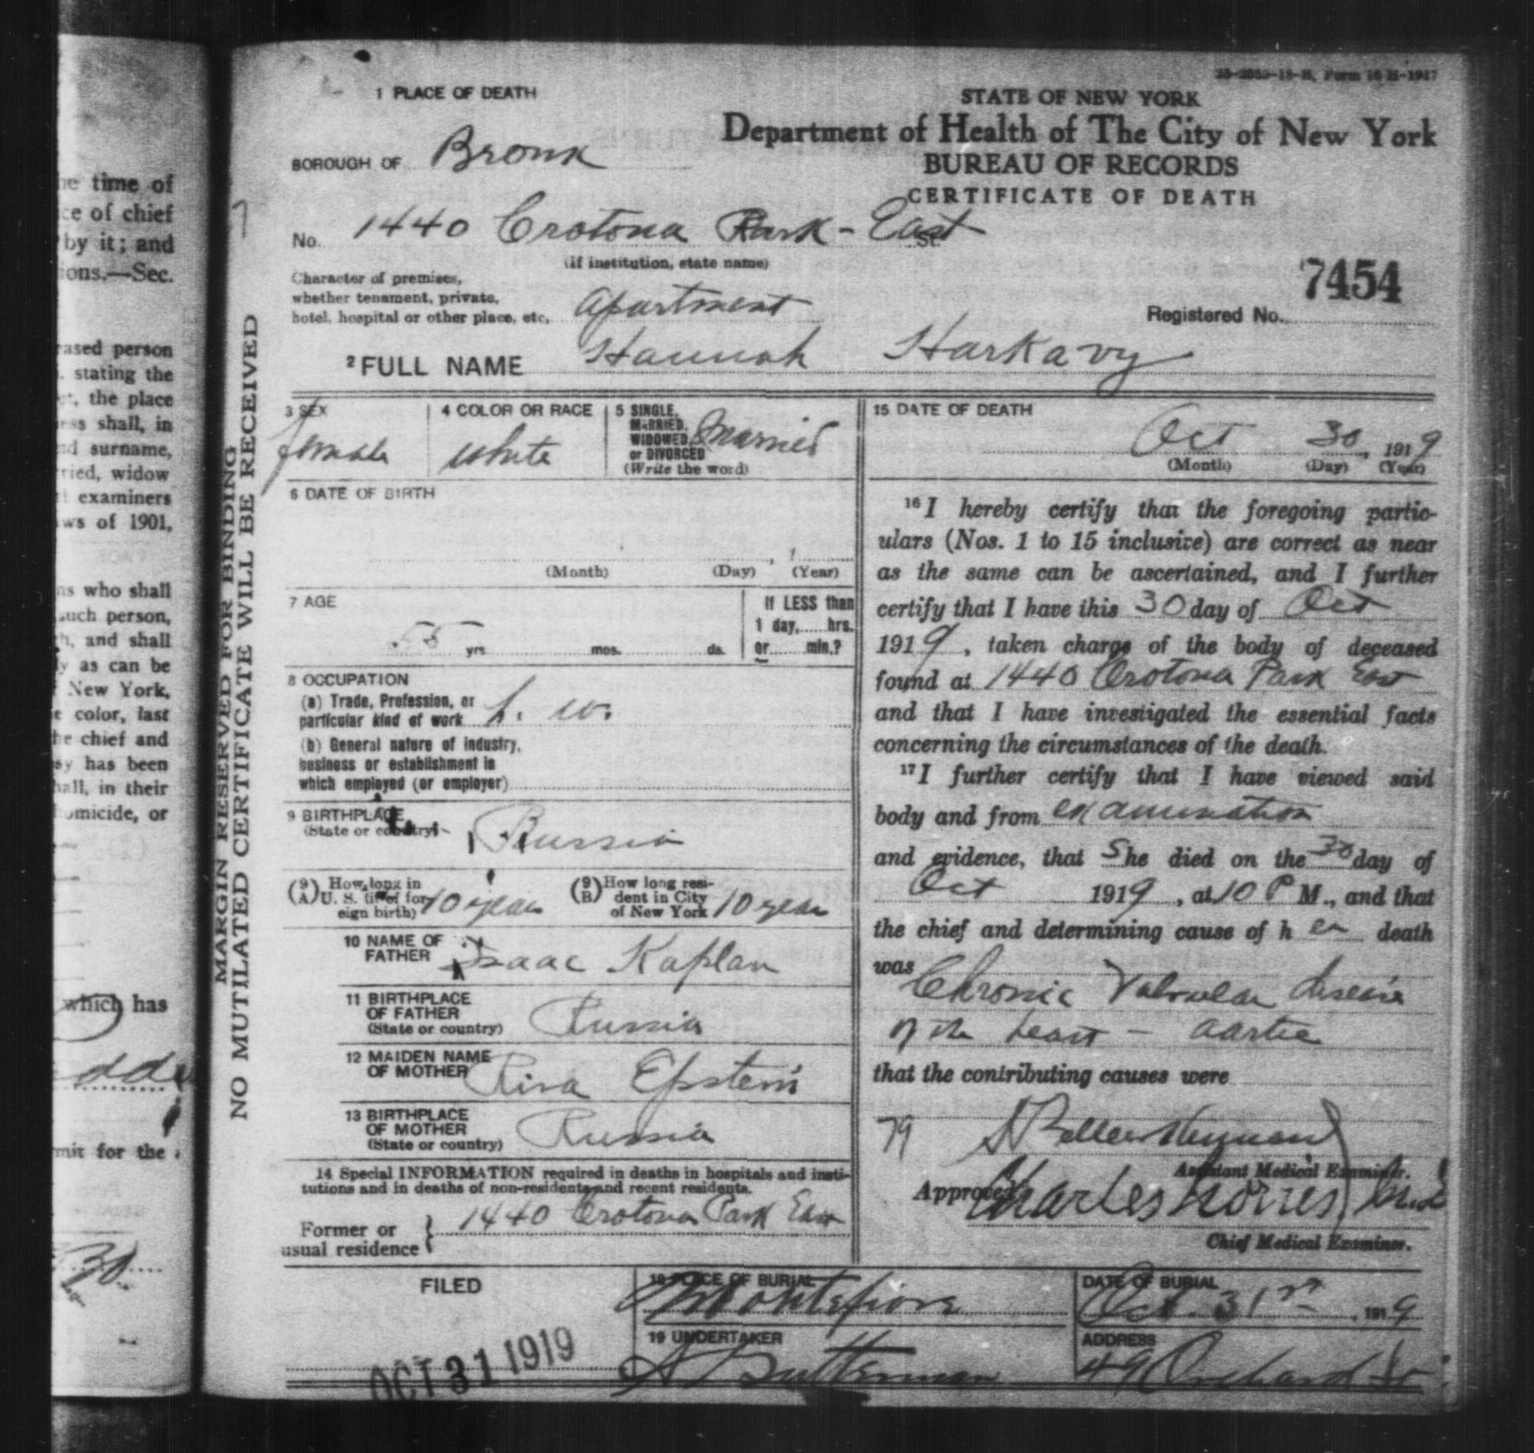 he time of
ce of chief
by it; and
ions.—Sec.
ased person
stating the
the place
ess shall, in
nd surname,
ried, widow
examiners
ws of 1901,
ns who shall
such person,
h, and shall
ly as can be
New York,
e color, last
he chief and
sy has been
hall, in their
homicide, or
which has
mit for the
30
MARGIN RESERVED FOR BINDING
NO MUTILATED CERTIFICATE WILL BE RECEIVED
1 PLACE OF DEATH
STATE OF NEW YORK
Department of Health of The City of New York
BUREAU OF RECORDS
CERTIFICATE OF DEATH
BOROUGH OF Bronx
No. 1440 Crotona Park - East St.
(If institution, state name)
Character of premises,
whether tenament, private,
hotel, hospital or other place, etc. Apartment
Registered No. 7454
2 FULL NAME Hannah Harkavy
3 SEX
female
4 COLOR OR RACE
white
5 SINGLE,
MARRIED,
WIDOWED,
or DIVORCED
(Write the word)
Married
6 DATE OF BIRTH
(Month) (Day) (Year)
7 AGE
55 yrs. mos. ds.
If LESS than
1 day, hrs.
or min.?
8 OCCUPATION
(a) Trade, Profession, or
particular kind of work h. w.
(b) General nature of industry,
business or establishment in
which employed (or employer)
9 BIRTHPLACE
(State or country) Russia
(9A) How long in
U. S. (if of for-
eign birth) 10 year
(9B) How long resi-
dent in City
of New York 10 year
10 NAME OF
FATHER Isaac Kaplan
11 BIRTHPLACE
OF FATHER
(State or country) Russia
12 MAIDEN NAME
OF MOTHER Riva Epstein
13 BIRTHPLACE
OF MOTHER
(State or country) Russia
14 Special INFORMATION required in deaths in hospitals and insti-
tutions and in deaths of non-residents and recent residents.
Former or
usual residence 1440 Crotona Park East
15 DATE OF DEATH
Oct 30, 1919
(Month) (Day) (Year)
16 I hereby certify that the foregoing partic-
ulars (Nos. 1 to 15 inclusive) are correct as near
as the same can be ascertained, and I further
certify that I have this 30 day of Oct
1919, taken charge of the body of deceased
found at 1440 Crotona Park East
and that I have investigated the essential facts
concerning the circumstances of the death.
17 I further certify that I have viewed said
body and from examination
and evidence, that She died on the 30 day of
Oct 1919, at 10 P M., and that
the chief and determining cause of her death
was Chronic Valvular disease
of the heart - aortic
that the contributing causes were
79
Assistant Medical Examiner.
Approved Charles Norris M.D.
Chief Medical Examiner.
FILED
OCT 31 1919
18 PLACE OF BURIAL
Montefiore
DATE OF BURIAL
Oct. 31st, 1919
19 UNDERTAKER
S Gutterman
ADDRESS
Orchard St